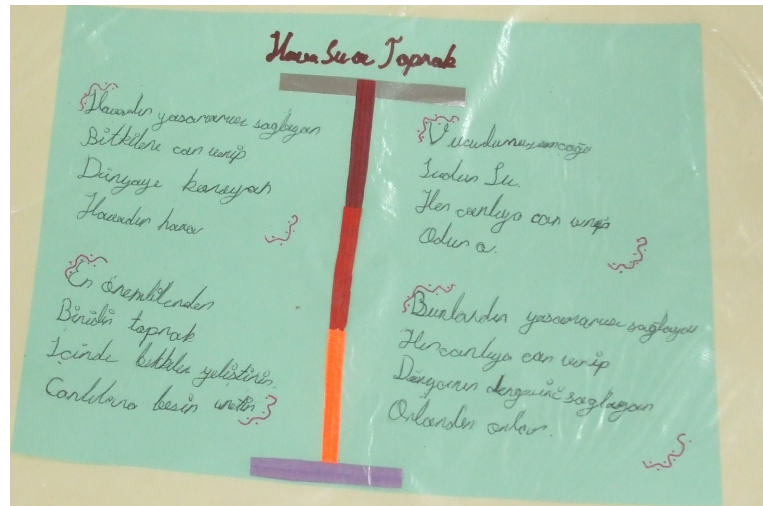 Hava Su ve Toprak
Havadır yaşamamızı sağlayan
Bitkilere can verip
Dünyayı koruyan
Havadır hava
En önemlilerden
Biridir toprak
İçinde bitkiler yetiştirir.
Canlılara besin üretir
Vucudumuzun
Sudur Su.
Her canlıya can verip
Odur o.
Bunlardır yaşamamızı sağlayan
Her canlıya can verip
Dünyanın dengesini sağlayan
Onlardır onlar.